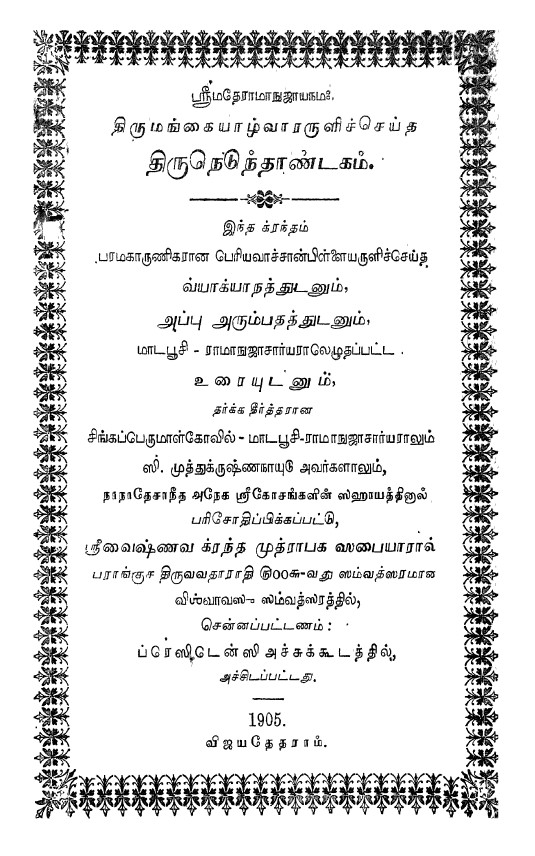 ஸ்ரீமதேராமாநுஜாயநமஃ.
திருமங்கையாழ்வாரருளிச்செய்த
திருநெடுந்தாண்டகம்.
இந்த க்ரந்தம்
பரமகாருணிகரான பெரியவாச்சான்பிள்ளையருளிச்செய்த
வ்யாக்யாநத்துடனும்,
அப்பு அரும்பதத்துடனும்,
மாடபூசி - ராமாநுஜாசார்யராலெழுதப்பட்ட
உரையுடனும்,
தர்க்க தீர்த்தரான
சிங்கப்பெருமாள்கோவில் - மாடபூசி-ராமாநுஜாசார்யராலும்
ஸி. முத்துக்ருஷ்ணநாயுடு அவர்களாலும்,
நாநாதேசாநீத அநேக ஸ்ரீகோசங்களின் ஸஹாயத்தினால்
பரிசோதிப்பிக்கப்பட்டு,
ஸ்ரீவைஷ்ணவ க்ரந்த முத்ராபக ஸபையாரால்
பராங்குச திருவவதாராதி ௫00௬-வது ஸம்வத்ஸரமான
விஶ்வாவஸு ஸம்வத்ஸரத்தில்,
சென்னப்பட்டணம் :
ப்ரேஸிடென்ஸி அச்சுக்கூடத்தில்,
அச்சிடப்பட்டது.
1905.
விஜயதேதராம்.